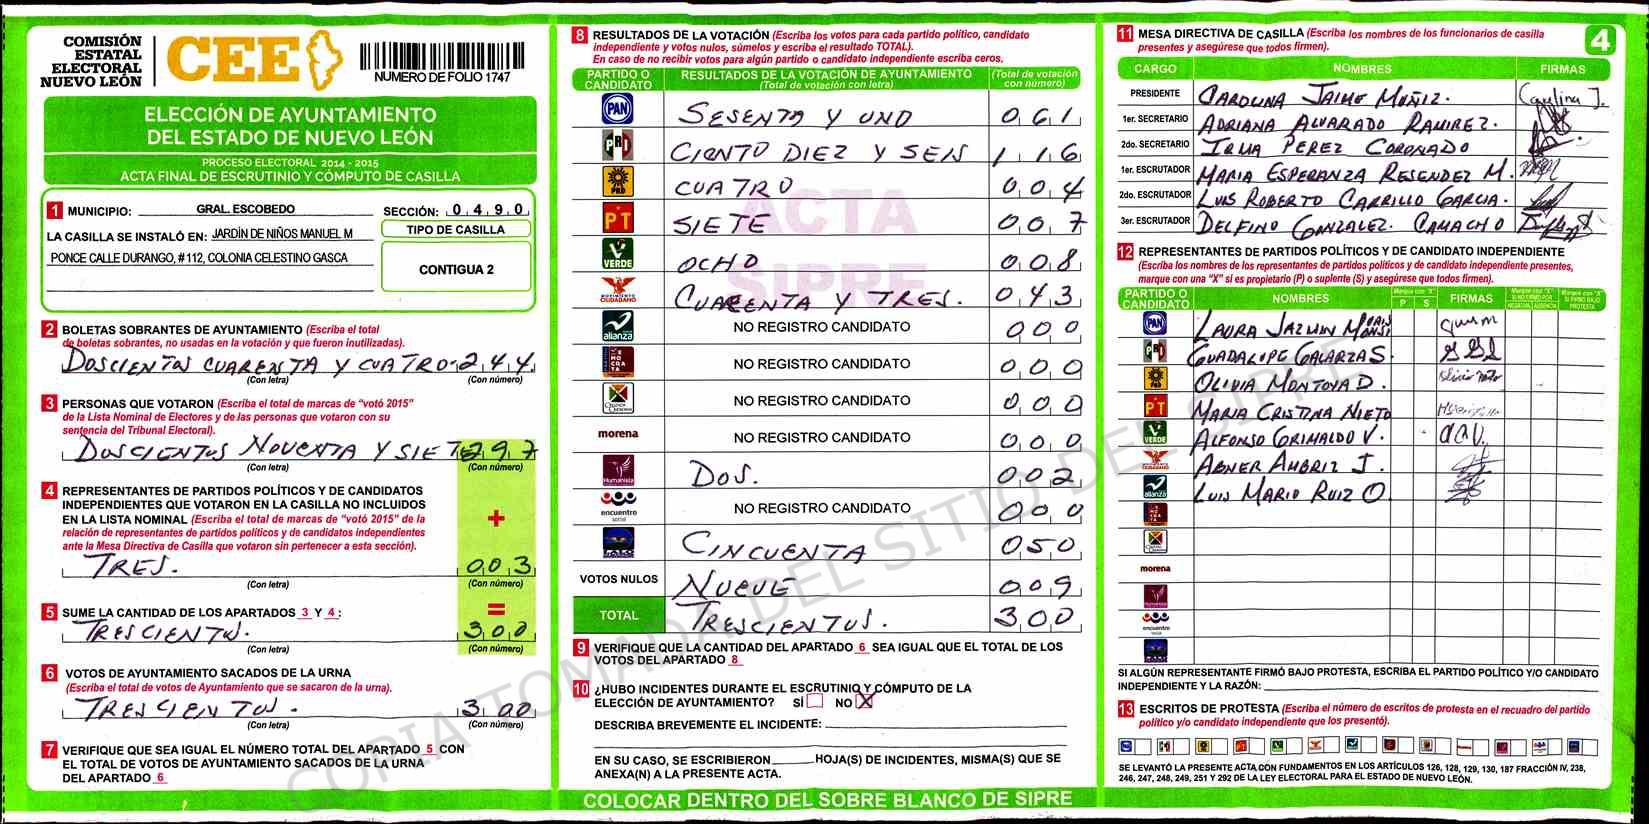 COMISIÓN
ESTATAL
ELECTORAL
NUEVO LEÓN
CEE
NUMERO DE FOLIO 1747
ELECCIÓN DE AYUNTAMIENTO
DEL ESTADO DE NUEVO LEÓN
PROCESO ELECTORAL 2014 - 2015
ACTA FINAL DE ESCRUTINIO Y CÓMPUTO DE CASILLA
1 MUNICIPIO: GRAL. ESCOBEDO SECCIÓN: 0 4 9 0
LA CASILLA SE INSTALÓ EN: JARDÍN DE NIÑOS MANUEL M
PONCE CALLE DURANGO, #112, COLONIA CELESTINO GASCA
TIPO DE CASILLA
CONTIGUA 2
2 BOLETAS SOBRANTES DE AYUNTAMIENTO (Escriba el total
de boletas sobrantes, no usadas en la votación y que fueron inutilizadas).
DOSCIENTOS CUARENTA Y CUATRO 2 4 4
(Con letra) (Con número)
3 PERSONAS QUE VOTARON (Escriba el total de marcas de "votó 2015"
de la Lista Nominal de Electores y de las personas que votaron con su
sentencia del Tribunal Electoral).
DOSCIENTOS NOVENTA Y SIETE 2 9 7
(Con letra) (Con número)
4 REPRESENTANTES DE PARTIDOS POLÍTICOS Y DE CANDIDATOS
INDEPENDIENTES QUE VOTARON EN LA CASILLA NO INCLUIDOS
EN LA LISTA NOMINAL (Escriba el total de marcas de "votó 2015" de la
relación de representantes de partidos políticos y de candidatos independientes
ante la Mesa Directiva de Casilla que votaron sin pertenecer a esta sección).
+
TRES. 0 0 3
(Con letra) (Con número)
5 SUME LA CANTIDAD DE LOS APARTADOS 3 Y 4 : =
TRESCIENTOS. 3 0 0
(Con letra) (Con número)
6 VOTOS DE AYUNTAMIENTO SACADOS DE LA URNA
(Escriba el total de votos de Ayuntamiento que se sacaron de la urna).
TRESCIENTOS. 3 0 0
(Con letra) (Con número)
7 VERIFIQUE QUE SEA IGUAL EL NÚMERO TOTAL DEL APARTADO 5 CON
EL TOTAL DE VOTOS DE AYUNTAMIENTO SACADOS DE LA URNA
DEL APARTADO 6
8 RESULTADOS DE LA VOTACIÓN (Escriba los votos para cada partido político, candidato
independiente y votos nulos, súmelos y escriba el resultado TOTAL).
En caso de no recibir votos para algún partido o candidato independiente escriba ceros.
PARTIDO O CANDIDATO RESULTADOS DE LA VOTACIÓN DE AYUNTAMIENTO (Total de votación con letra) (Total de votación con número)
PAN SESENTA Y UNO 0 6 1
PRI CIENTO DIEZ Y SEIS 1 1 6
PRD CUATRO 0 0 4
PT SIETE 0 0 7
VERDE OCHO 0 0 8
MOVIMIENTO CIUDADANO CUARENTA Y TRES. 0 4 3
alianza NO REGISTRO CANDIDATO 0 0 0
NO REGISTRO CANDIDATO 0 0 0
NO REGISTRO CANDIDATO 0 0 0
morena NO REGISTRO CANDIDATO 0 0 0
Humanista DOS. 0 0 2
encuentro social NO REGISTRO CANDIDATO 0 0 0
CINCUENTA 0 5 0
VOTOS NULOS NUEVE 0 0 9
TOTAL TRESCIENTOS. 3 0 0
ACTA
SIPRE
9 VERIFIQUE QUE LA CANTIDAD DEL APARTADO 6 SEA IGUAL QUE EL TOTAL DE LOS
VOTOS DEL APARTADO 8
10 ¿HUBO INCIDENTES DURANTE EL ESCRUTINIO Y CÓMPUTO DE LA
ELECCIÓN DE AYUNTAMIENTO? SÍ NO X
DESCRIBA BREVEMENTE EL INCIDENTE:
EN SU CASO, SE ESCRIBIERON HOJA(S) DE INCIDENTES, MISMA(S) QUE SE
ANEXA(N) A LA PRESENTE ACTA.
COLOCAR DENTRO DEL SOBRE BLANCO DE SIPRE
11 MESA DIRECTIVA DE CASILLA (Escriba los nombres de los funcionarios de casilla
presentes y asegúrese que todos firmen).
4
CARGO NOMBRES FIRMAS
PRESIDENTE CAROLINA JAIME MUÑIZ. Carolina J.
1er. SECRETARIO ADRIANA ALVARADO RAMIREZ.
2do. SECRETARIO IRMA PEREZ CORONADO
1er. ESCRUTADOR MARIA ESPERANZA RESENDEZ M.
2do. ESCRUTADOR LUIS ROBERTO CARRILLO GARCIA.
3er. ESCRUTADOR DELFINO GONZALEZ CAMACHO
12 REPRESENTANTES DE PARTIDOS POLÍTICOS Y DE CANDIDATO INDEPENDIENTE
(Escriba los nombres de los representantes de partidos políticos y de candidato independiente presentes,
marque con una "X" si es propietario (P) o suplente (S) y asegúrese que todos firmen).
PARTIDO O CANDIDATO NOMBRES Marque con "X" P S FIRMAS Marque con "X" SI NO FIRMÓ POR NEGATIVA AUSENCIA Marque con "X" SI FIRMÓ BAJO PROTESTA
PAN LAURA JAZMIN
PRI GUADALUPE GALARZA S.
PRD OLIVIA MONTOYA D.
PT MARIA CRISTINA NIETO
VERDE ALFONSO GRIMALDO V.
CIUDADANO ABNER AMBRIZ J.
alianza LUIS MARIO RUIZ O.
morena
encuentro social
SI ALGÚN REPRESENTANTE FIRMÓ BAJO PROTESTA, ESCRIBA EL PARTIDO POLÍTICO Y/O CANDIDATO
INDEPENDIENTE Y LA RAZÓN:
13 ESCRITOS DE PROTESTA (Escriba el número de escritos de protesta en el recuadro del partido
político y/o candidato independiente que los presentó).
SE LEVANTÓ LA PRESENTE ACTA CON FUNDAMENTOS EN LOS ARTÍCULOS 126, 128, 129, 130, 187 FRACCIÓN IV, 238,
246, 247, 248, 249, 251 Y 292 DE LA LEY ELECTORAL PARA EL ESTADO DE NUEVO LEÓN.
COPIA TOMADA DEL SITIO DEL SIPRE